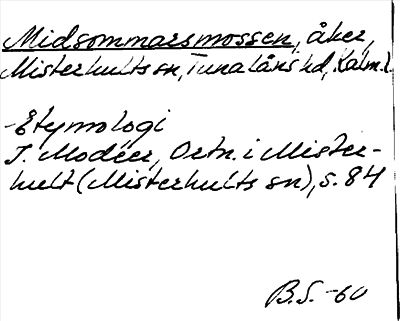 Midsommarsmossen, åker,
Misterhults sn, Tunaläns hd, Kalm.l.
-Etymologi
I. Modéer, Ortn. i Mister-
hult (Misterhults sn), s. 84
B.S. -60